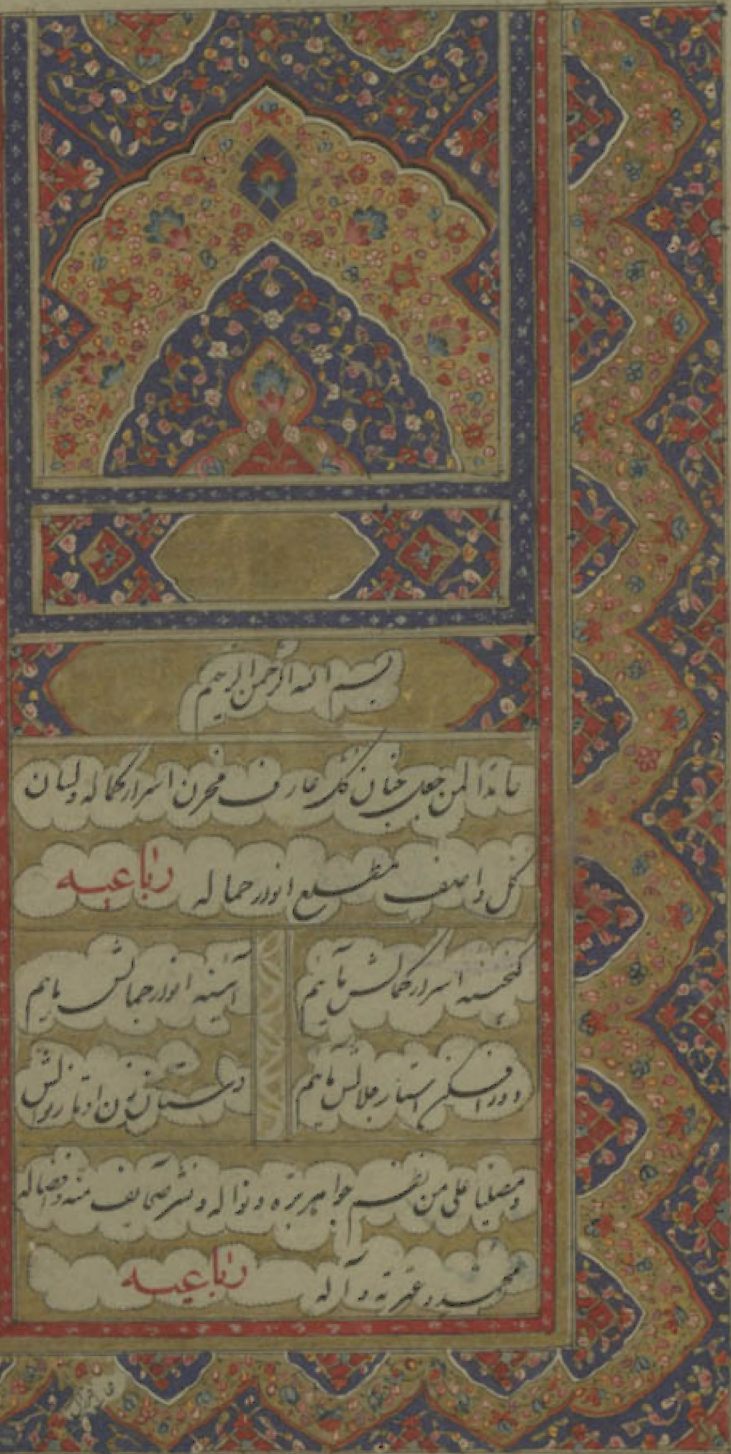 بسم الله الرحمن الرحیم
حامدا لمن جعل جنان کل عارف مخزن اسرار کماله و لسان
کل واصف مطلع انوار جماله رباعیه
گنجینه اسرار کمالش مائیم آئینه انوار جمالش مائیم
استار جلالش مائیم دستان زن اوتار نوالش
و مصلیا علی من نظم جواهر بره و نواله و نشر صحایف منه و افضاله
محمد و عترته و آله رباعیه